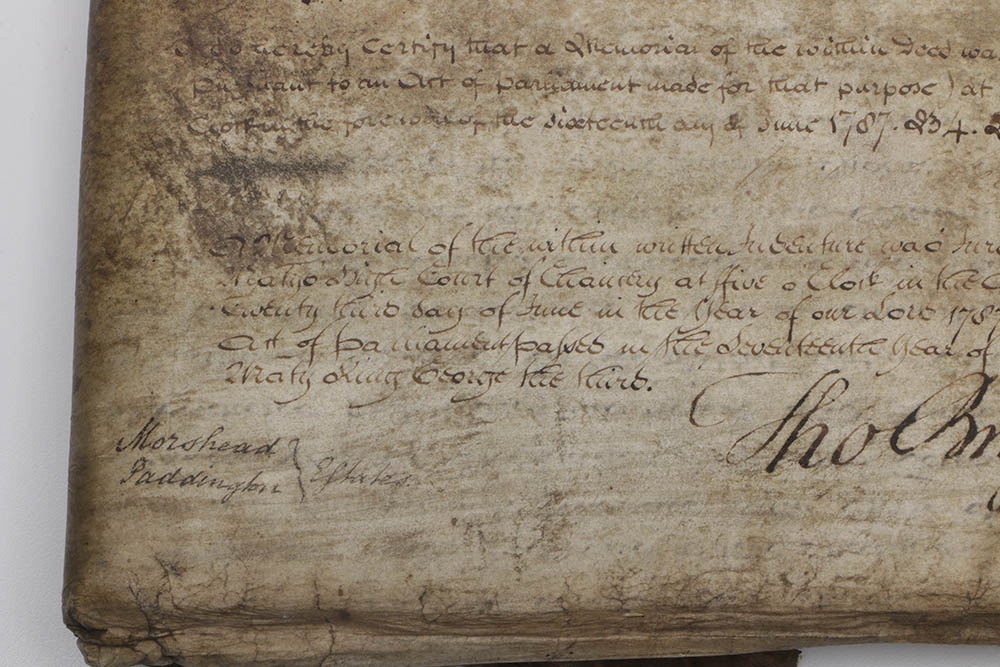 I do hereby Certify that a Memorial of the within Deed was
pursuant to an Act of Parliament made for that purpose) at
Clock in the forenoon of the sixteenth day of June 1787. B 4.
A Memorial of the within written Indenture was Inr
Majtys High Court of Chancery at five o Clock in the
Twenty third day of June in the Year of our Lord 178
Act of Parliament passed in the Seventeenth Year of
Majty King George the third.
Tho
Morshead
Paddington } Estates